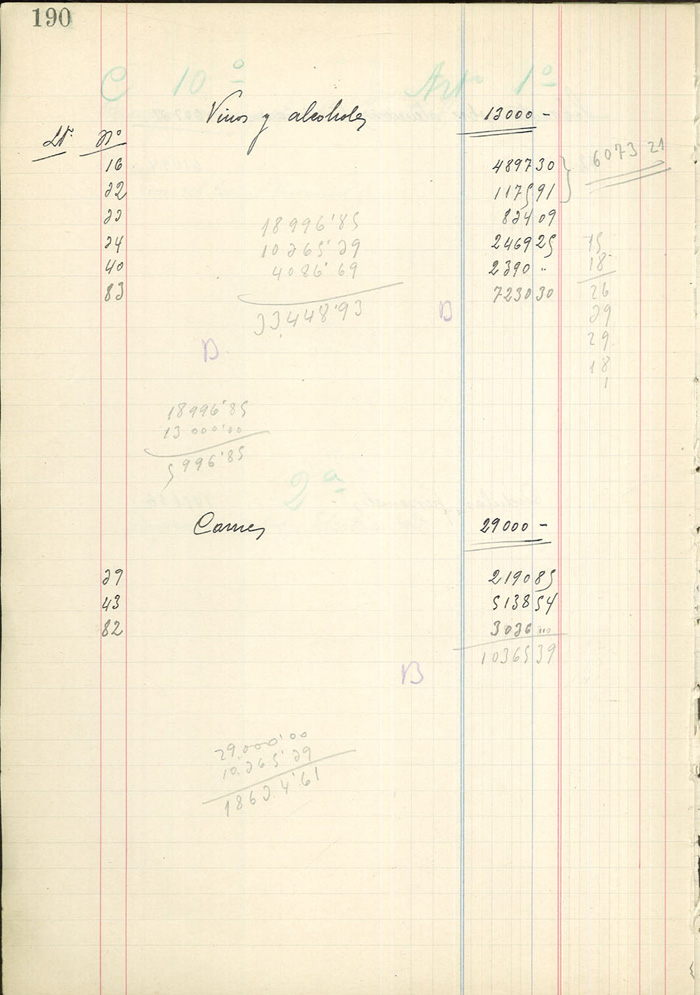 190
C 10º Artº 1º
Vinos y alcoholes 13000 -
Lº. Nº
16 4897 30 } 6073 21
22 1175 91
23 824 09
18996'85
24 2469 25 15
10265'29
40 2390 " 18
4086'69
83 7230 30 26
33,448'93 B 29
B 29
18
1
18996'85
13000'00
5996'85
2ª
Carnes 29000 -
29 2190 85
43 5138 54
82 3036 ...
10365 39
B
29,000,00
10,265,29
1862.4,61